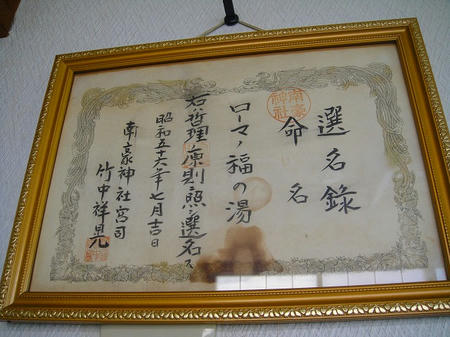 選名錄
命名
ローマノ福の湯
右哲理ノ原則ニ照シ選名ス
昭和五十六年七月吉日
南豪神社宮司
竹中祥晃